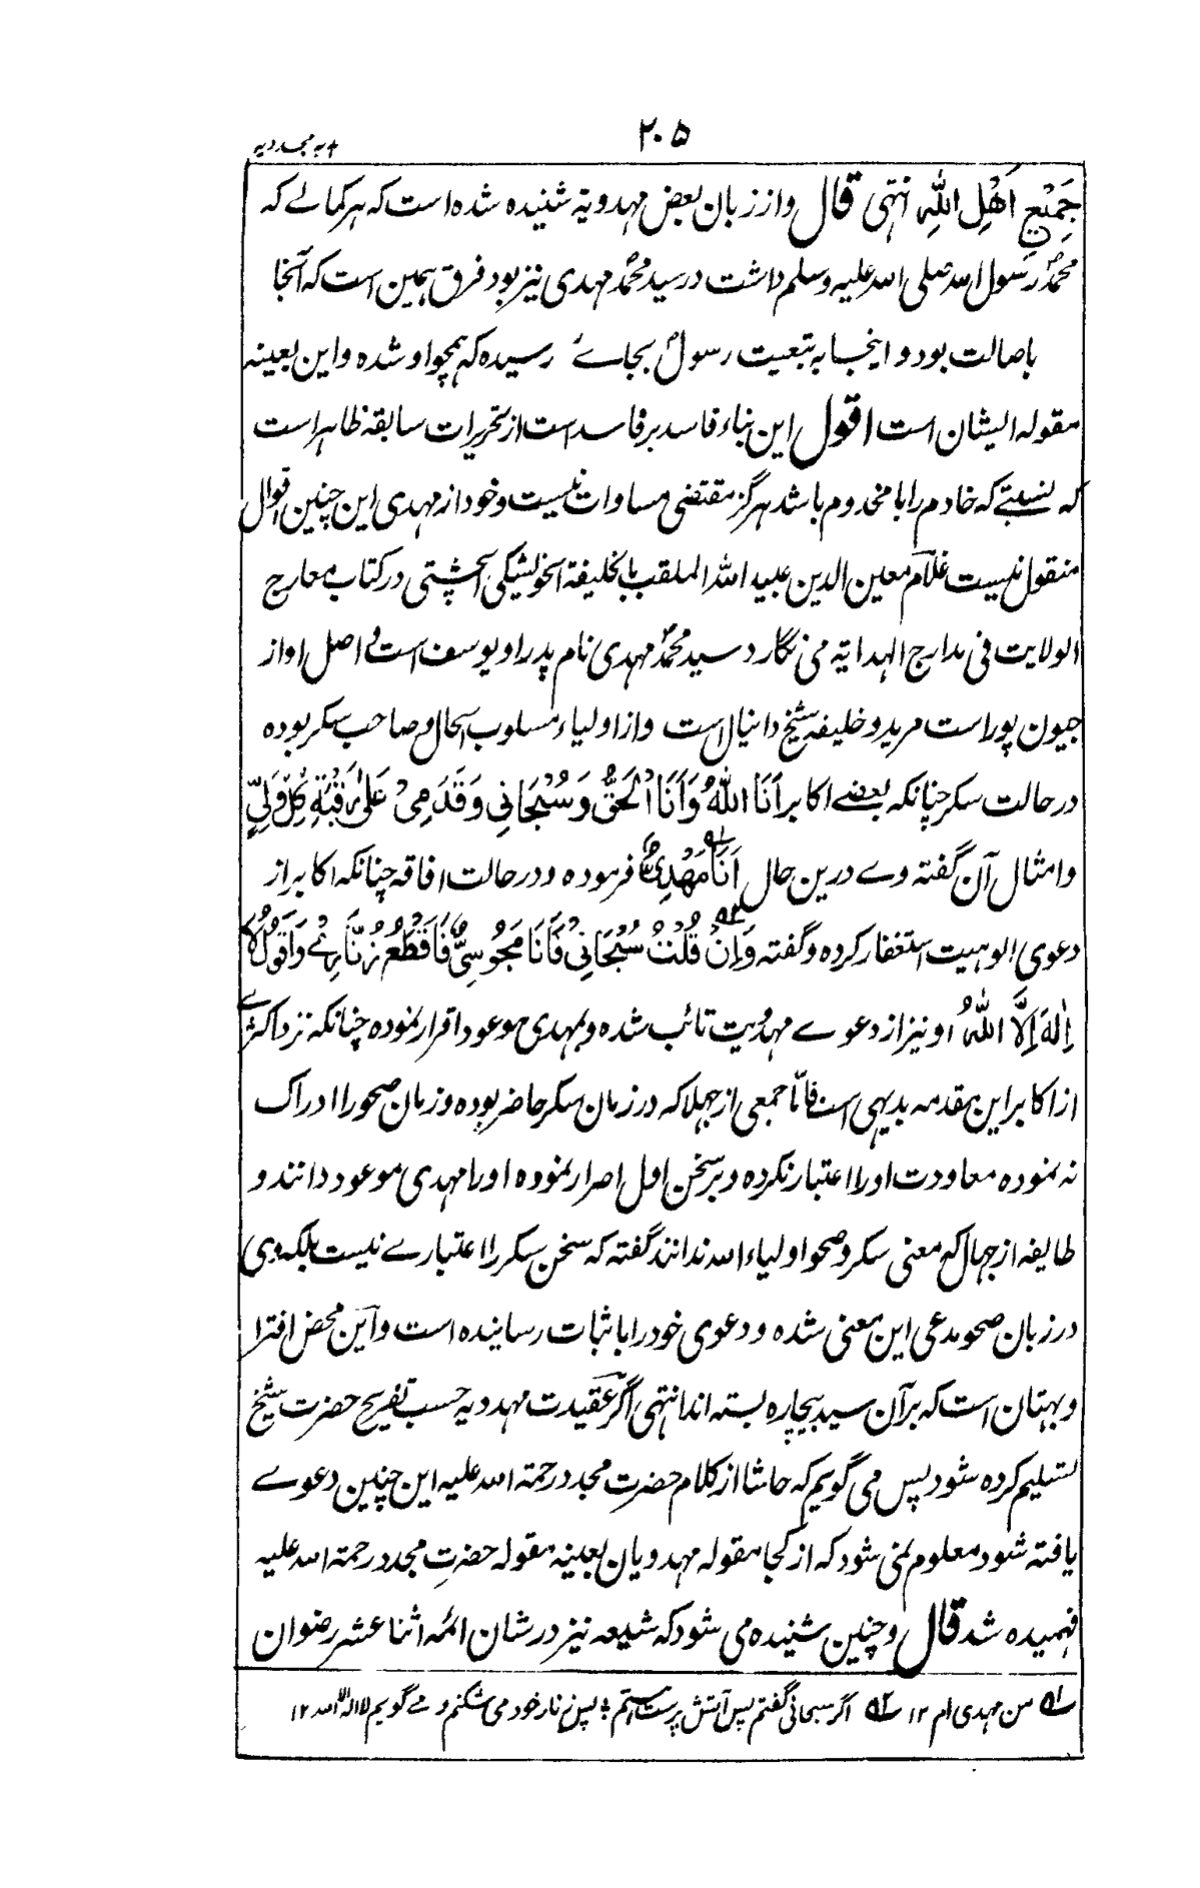 ۲۰۵
ہدیہ مجددیہ
جَمِیْعِ اَهْلِ اللّٰهِ انتہی قال واز زبان بعض مہدویہ شنیدہ شدہ است کہ ہر کمالے کہ
محمدؐ رسول اللہ صلی اللہ علیہ وسلم داشت در سید محمدؐ مہدی نیز بود فرق ہمین است کہ آنجا
باصالت بود و اینجا بہ تبعیت رسولؐ بجاۓ رسیدہ کہ ہمچو او شدہ واین بعینہ
مقولہ ایشان است اقول این بناء فاسد بر فاسد است از تحریرات سابقہ ظاہر است
کہ نسبتے کہ خادم را با مخدوم باشد ہرگز مقتضی مساوات نیست و خود از مہدی این چنین اقوال
منقول نیست غلام معین الدین عبید اللہ الملقب بالخلیفۃ الخویشگی الچشتی در کتاب معارج
الولایت فی مدارج الہدایتہ می نگارد سید محمدؐ مہدی نام پدر او یوسف است و اصل او از
جیون پور است مرید و خلیفہ شیخ دانیال است واز اولیاء مسلوب الحال و صاحب سکر بودہ
در حالت سکر چنانکہ بعضے اکابر اَنَا اللّٰهُ وَاَنَا الْحَقُّ وَسُبْحَانِی وَقَدَمِیْ عَلٰی رَقَبَةِ کُلِّ وَلِیٍّ
وامثال آن گفتہ وے درین حال اَنَا مَهْدِیٌّ فرمودہ و در حالت افاقہ چنانکہ اکابر از
دعوی الوہیت استغفار کردہ و گفتہ وَاِنْ قُلْتُ سُبْحَانِیْ فَاَنَا مَجُوْسِیٌّ فَاَقْطَعُ زُنَّارِیْ وَاَقُوْلُ لَا
اِلٰهَ اِلَّا اللّٰهُ او نیز از دعوے مہدویت تائب شدہ و بمہدی موعود اقرار نمودہ چنانکہ نزد اکثرے
از اکابر این مقدمہ بدیہی است فاما جمعی از جہلا کہ در زمان سکر حاضر بودہ و زمان صحو را ادراک
نہ نمودہ معاودت او را اعتبار نکردہ و بر سخن اول اصرار نمودہ او را مہدی موعود دانند و
طایفہ از جہال کہ معنی سکر و صحو اولیاء اللہ ندانند گفتہ کہ سخن سکر را اعتبارے نیست بلکہ وی
در زبان صحو مدعی این معنی شدہ و دعوی خود را باثبات رسانیدہ است واین محض افترا
وبہتان است کہ بر آن سید بیچارہ بستہ اند انتہی اگر عقیدت مہددیہ حسب تفریح حضرت شیخ
تسلیم کردہ شود پس می گویم کہ حاشا از کلام حضرت مجدد رحمۃ اللہ علیہ این چنین دعوے
یافتہ شود معلوم نمی شود کہ از کجا مقولہ مہدویان بعینہ مقولہ حضرتِ مجدد رحمۃ اللہ علیہ
فہمیدہ شد قال و چنین شنیدہ می شود کہ شیعہ نیز در شان ائمہ اثنا عشر رضوان
۵۱ من مہدی ام ۱۲ ۵۲ اگر سبحانی گفتم پس آتش پرستم ؛ پس زنار خود می شکنم و مے گویم لا الہ الا اللہ ۱۲